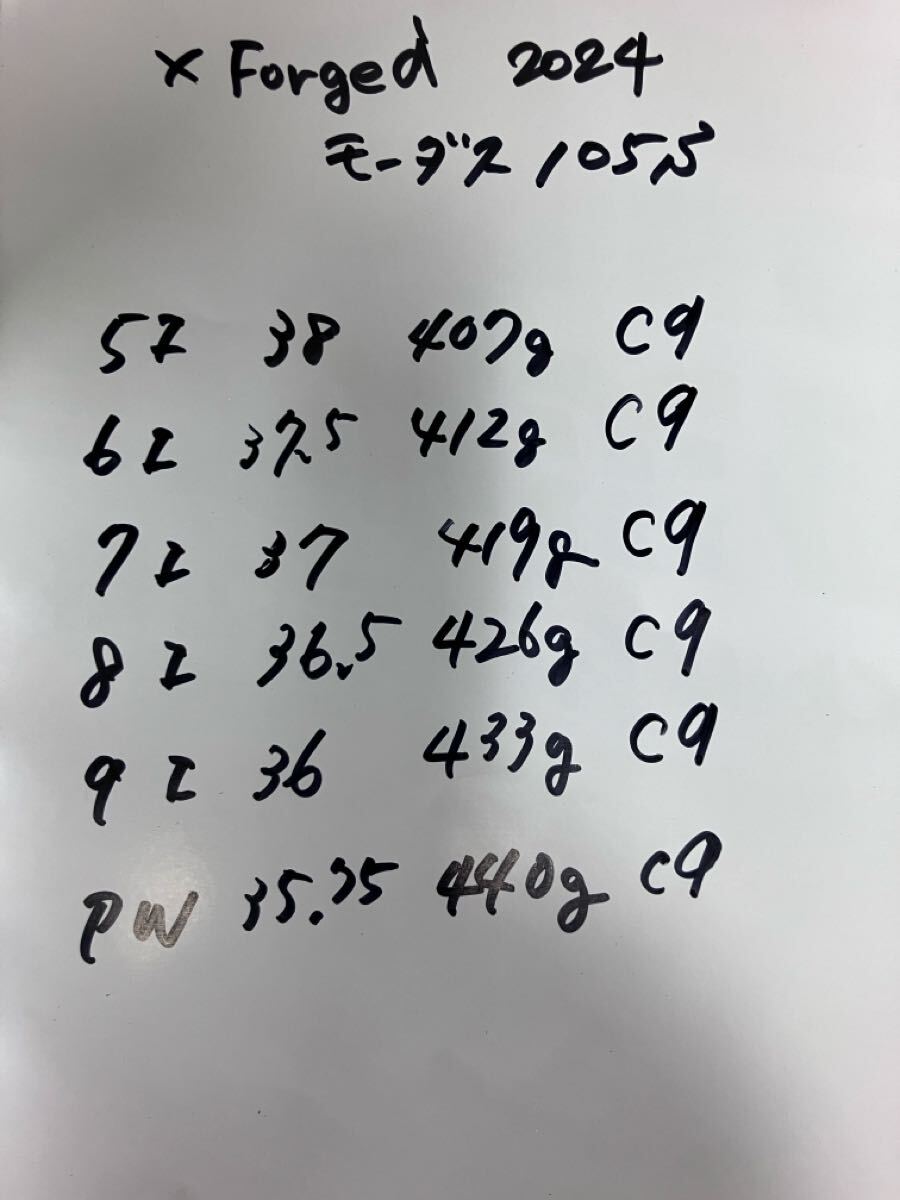 × Forged 2024
モーダス 105S
5I 38 407g C9
6I 37.5 412g C9
7I 37 419g C9
8I 36.5 426g C9
9I 36 433g C9
PW 35.75 440g C9